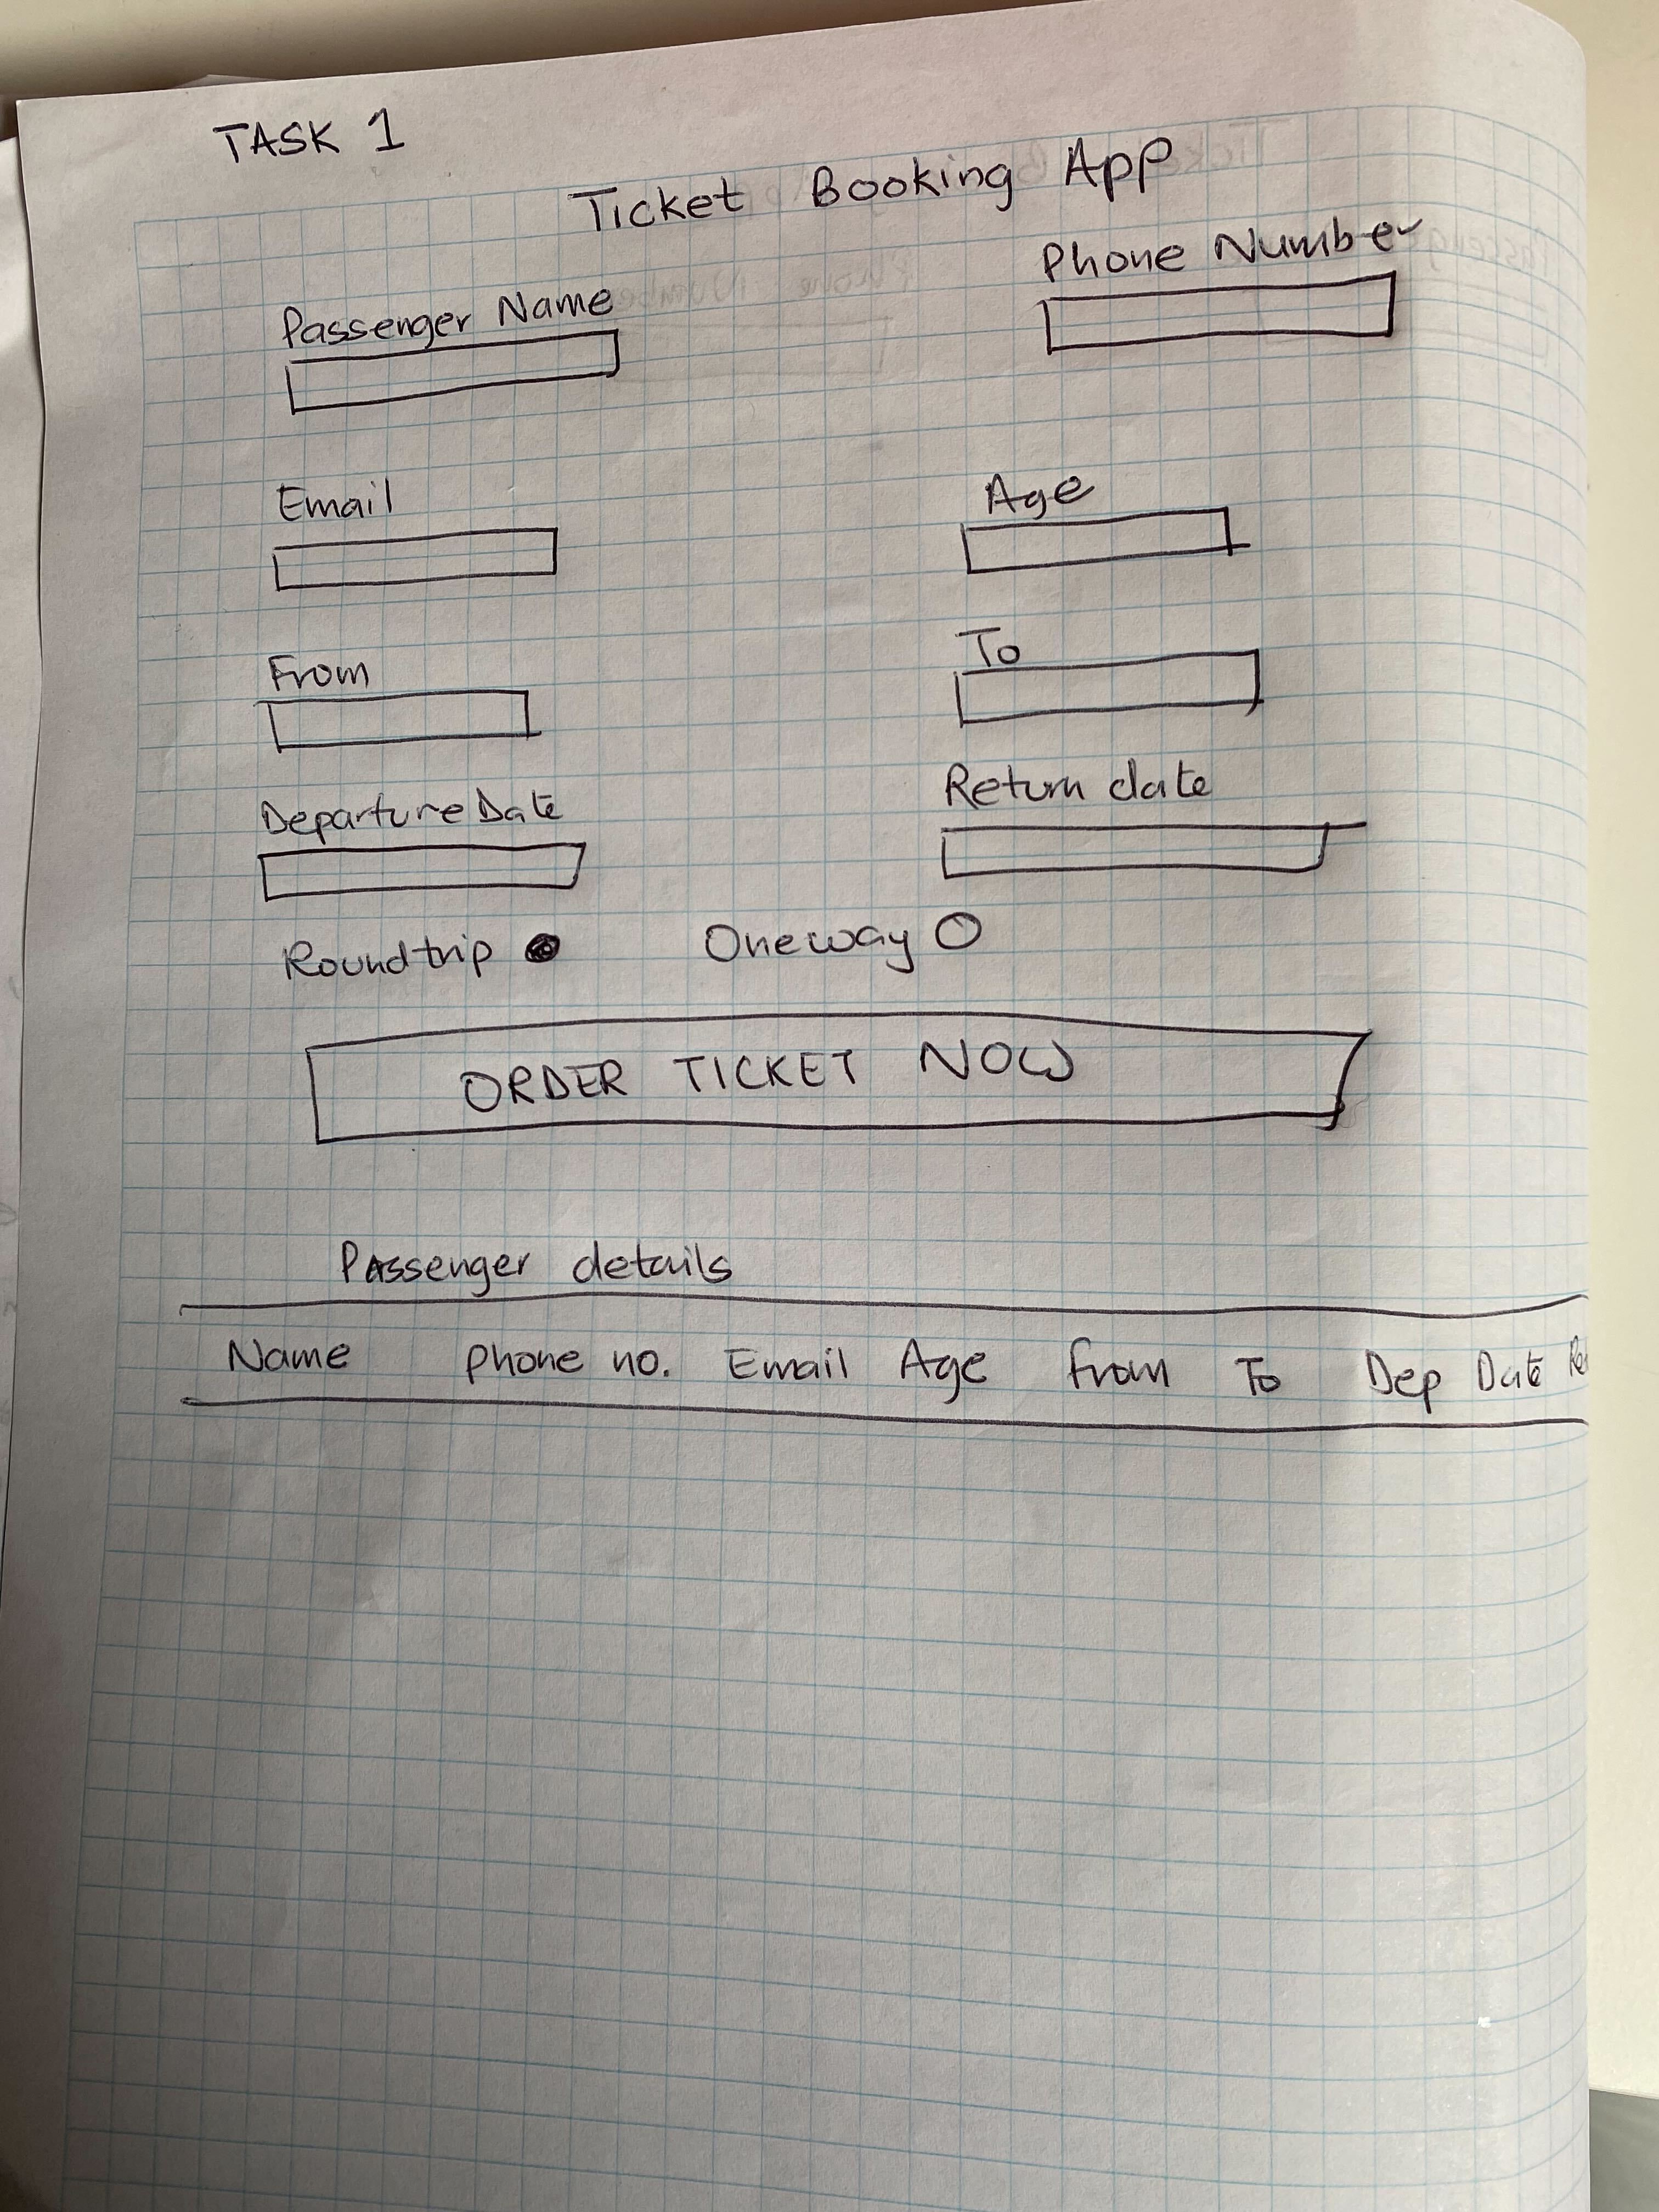 TASK 1
Ticket Booking App
Passenger Name Phone Number
Email Age
From To
Departure Date Return date
Roundtrip Oneway
ORDER TICKET NOW
Passenger details
Name phone no. Email Age from To Dep Date